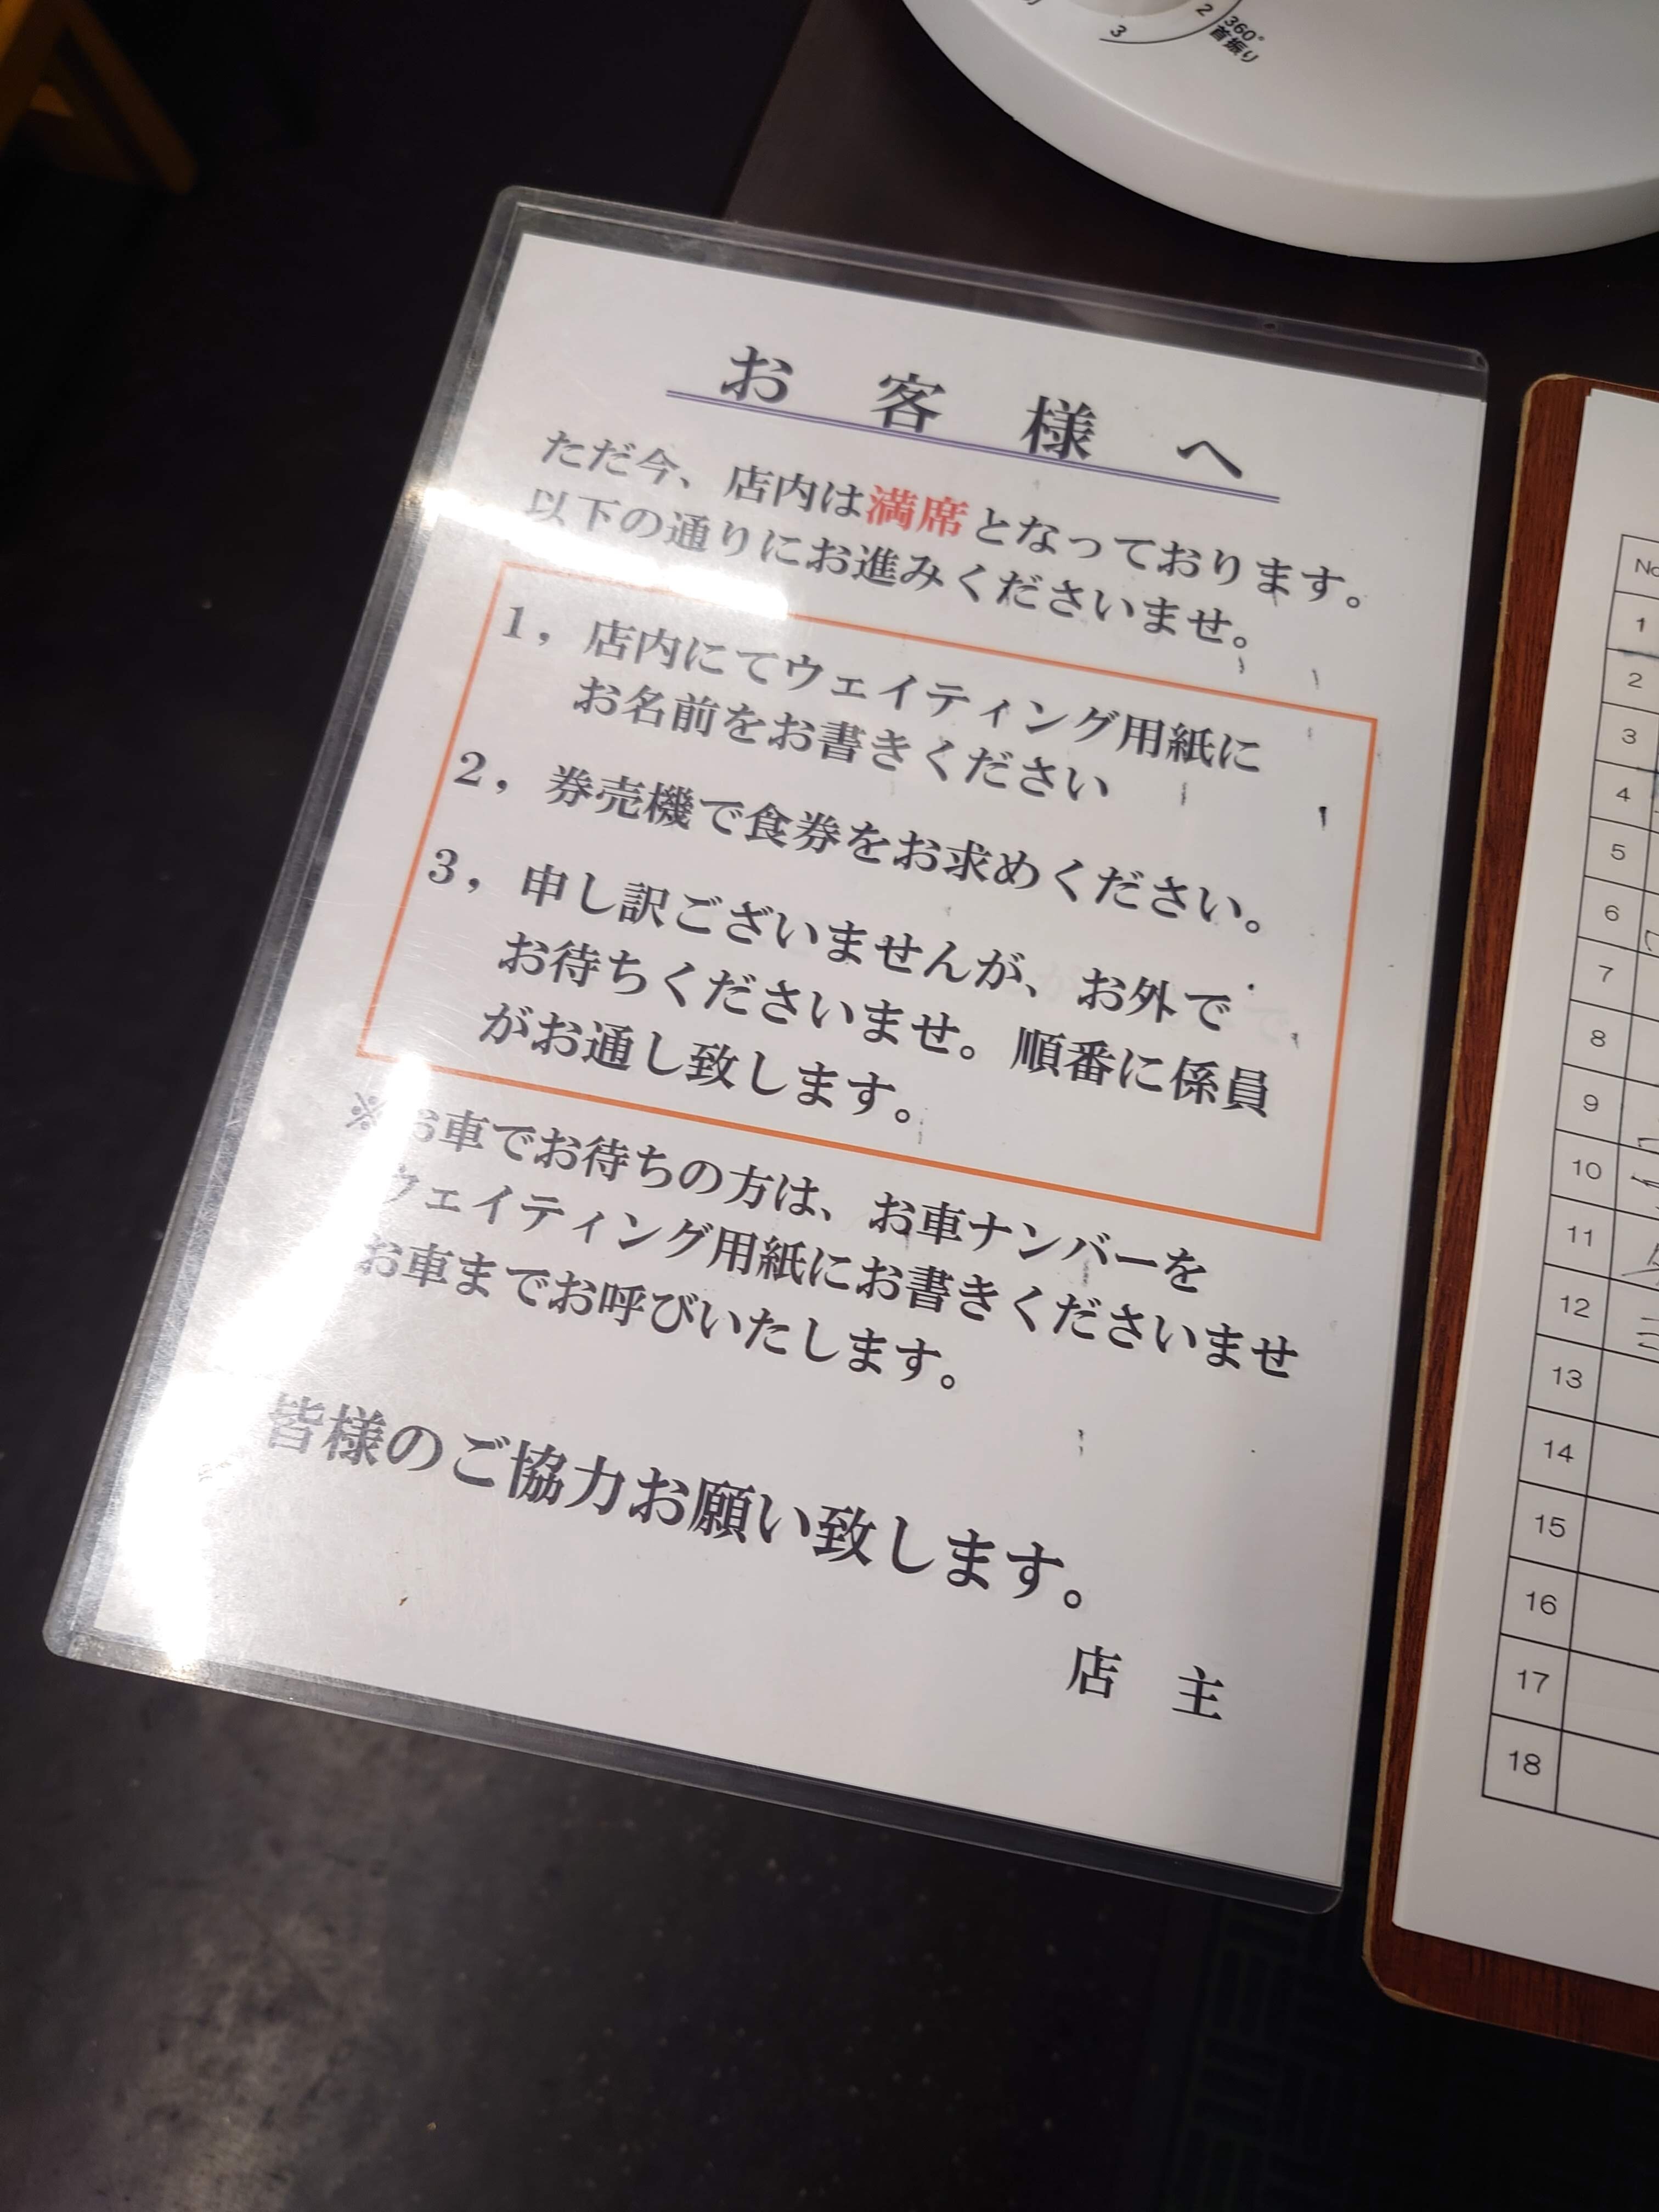 360°
首振り
2
3
お客様へ
ただ今、店内は満席となっております。
以下の通りにお進みくださいませ。
1，店内にてウェイティング用紙に
お名前をお書きください
2，券売機で食券をお求めください。
3，申し訳ございませんが、お外で
お待ちくださいませ。順番に係員
がお通し致します。
※お車でお待ちの方は、お車ナンバーを
ウェイティング用紙にお書きくださいませ
お車までお呼びいたします。
皆様のご協力お願い致します。
店主
1
2
3
4
5
6
7
8
9
10
11
12
13
14
15
16
17
18